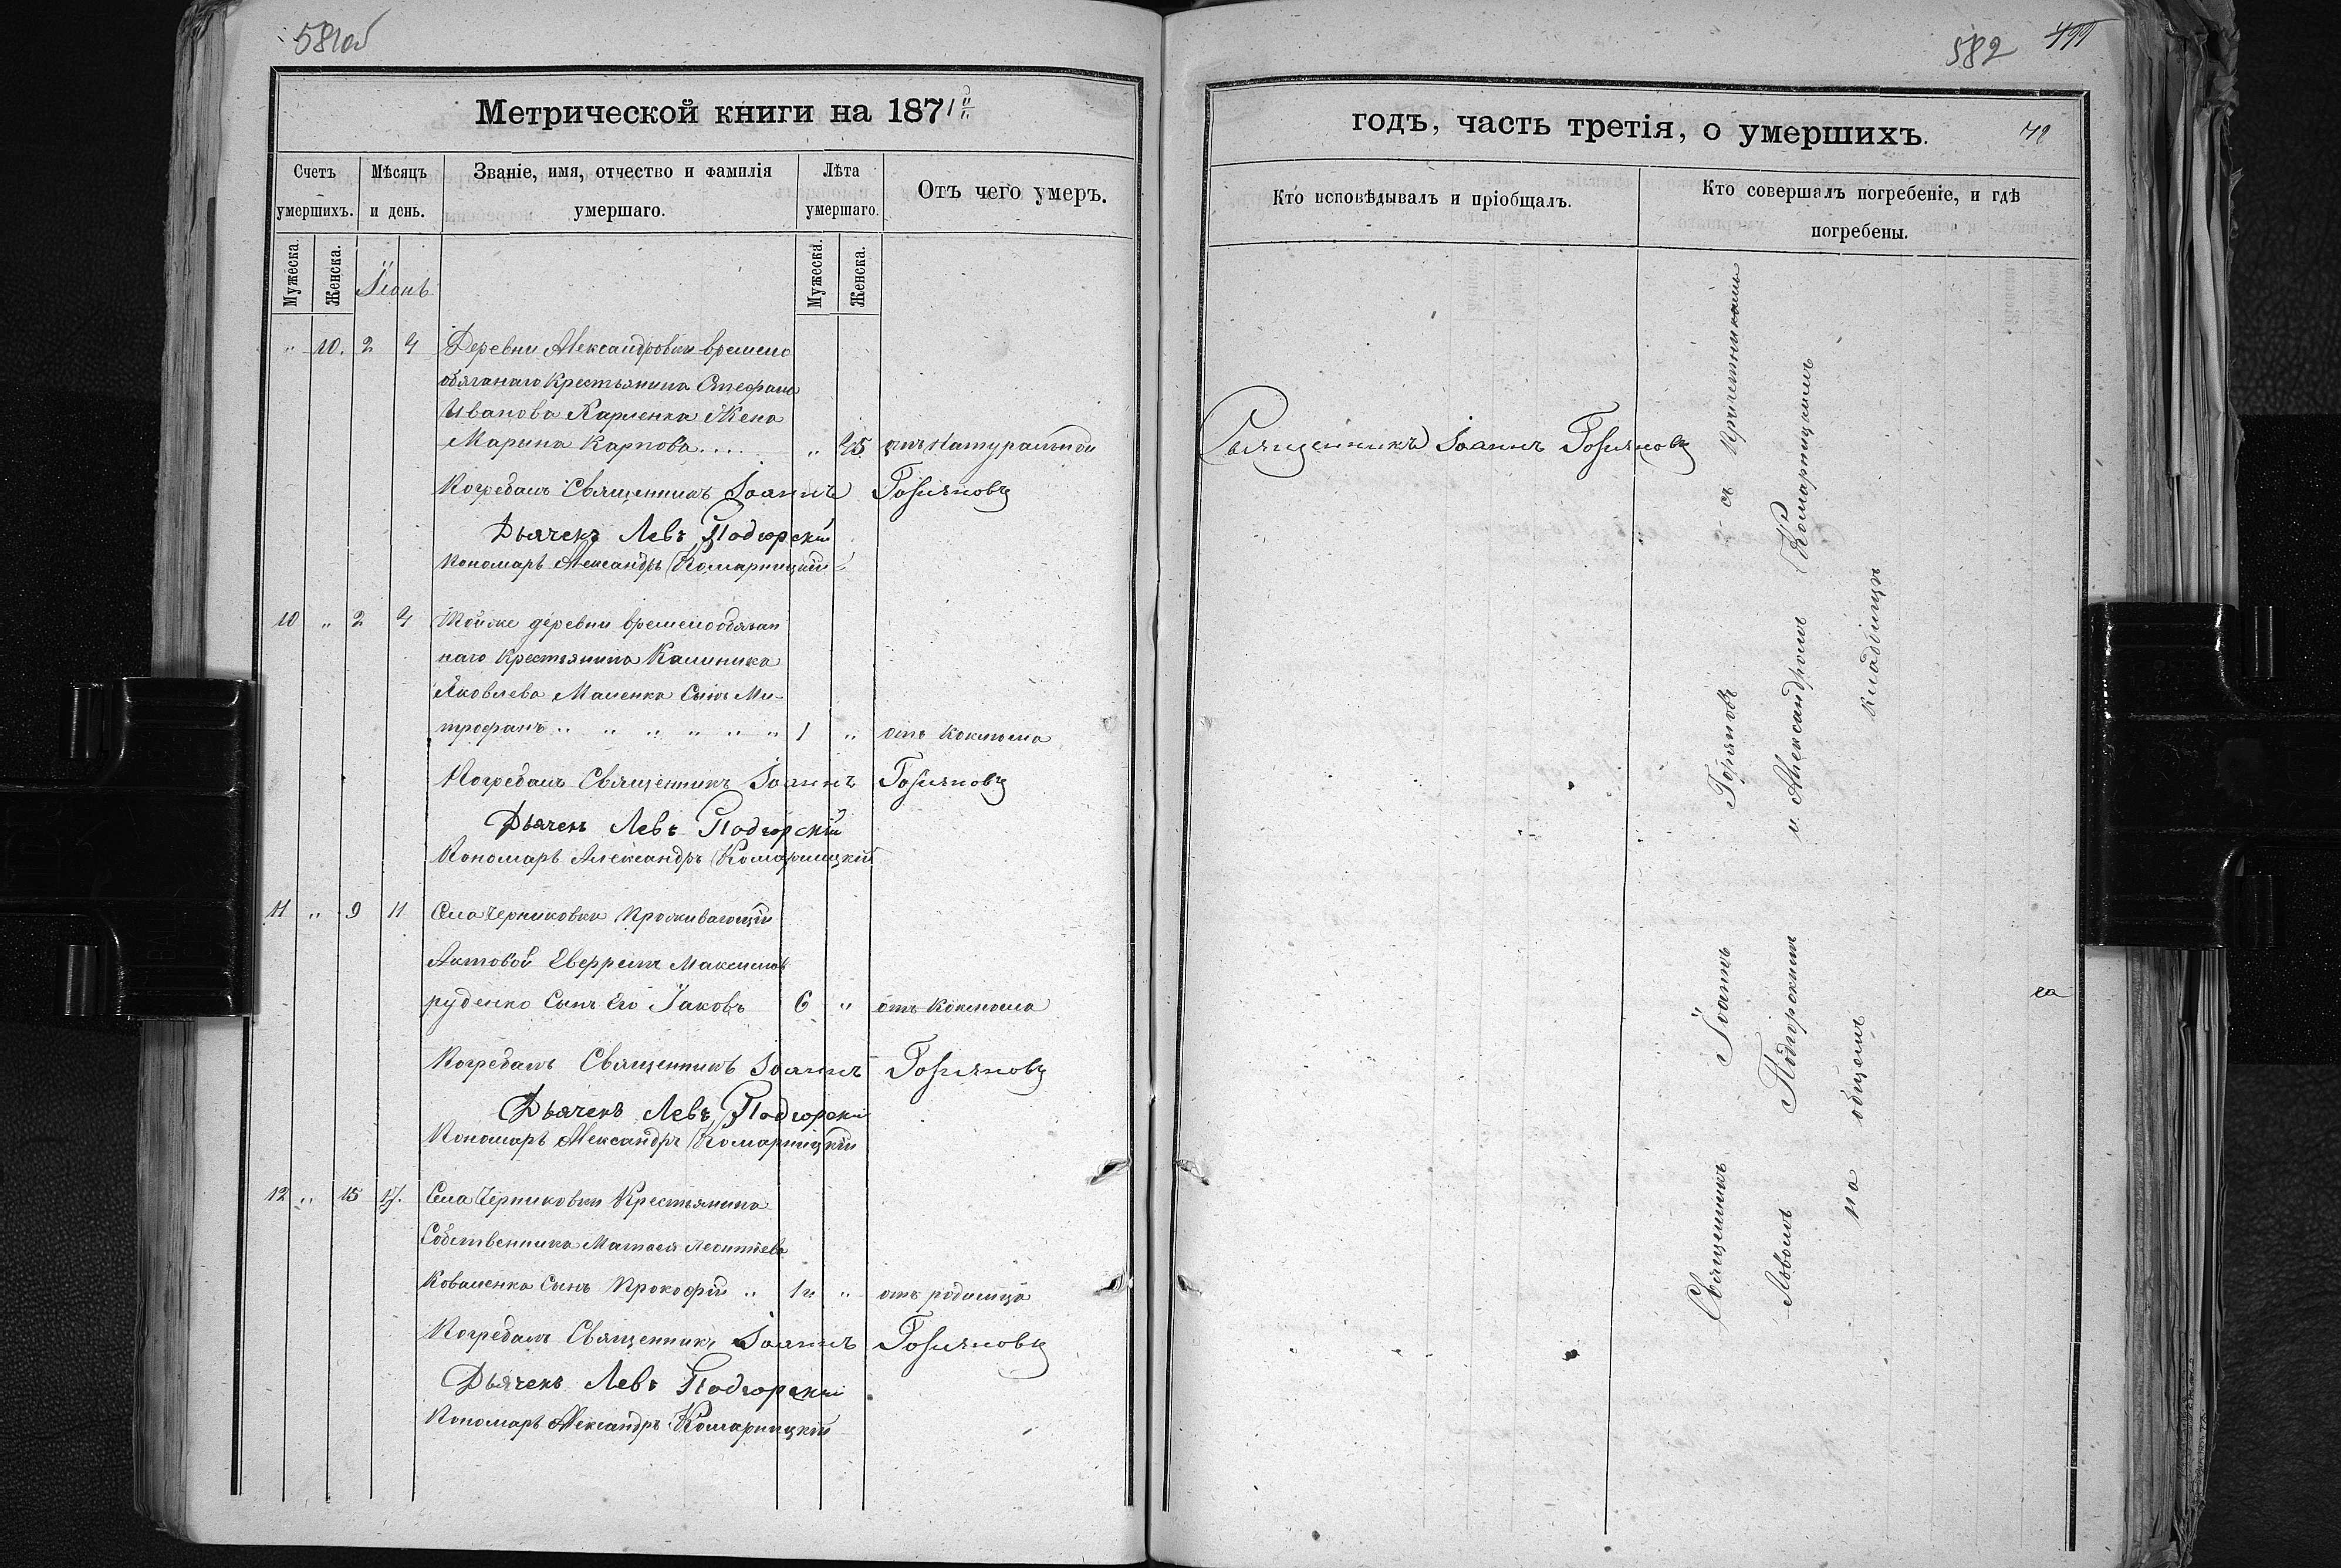 581об
Метрической книги на 1871й
Счетъ умершихъ.
Мѣсяцъ и день.
Званіе, имя, отчество и фамилія умершаго.
Лѣта умершаго.
Отъ чего умеръ.
Мужеска.
Женска.
Іюнь
Мужеска.
Женска.
„ 10. 2 4 Деревни Александровки времено
обязанаго Крестьянина Стефана
Иванова Карленка Жена
Марина Карпова.... „ 45 отъ Натуральной
Погребалъ Священникъ Іоаннъ
Дьячекъ Левъ Подгорскій
Пономарь Александръ Комарницкій
10 „ 2 4 Тойже деревни временообязан
наго Крестьянина Калиника
Яковлева Маленка Сынъ Ми-
трофанъ „ „ „ „ „ „ 1 „ отъ Коклюша
Погребалъ Священникъ Іоаннъ
Дьячекъ Левъ Подгорскій
Пономарь Александръ Комарницкій
11 „ 9 11 Села Черниковки Проживающій
Максимов
руденко Сынъ Его Іаковъ 6 „ отъ Коклюша
Погребалъ Священникъ Іоаннъ
Дьячекъ Левъ Подгорскій
Пономарь Александръ Комарницкій
12 „ 15 17. Села Черниковки Крестьянина
Собственника Матѳея Леонтіева
Коваленка Сынъ Прокофій „ „ отъ родимца
Погребалъ Священникъ Іоаннъ
Дьячекъ Левъ Подгорскій
Пономарь Александръ Комарницкій
582
годъ, часть третія, о умершихъ.
Кто исповѣдывалъ и пріобщалъ.
Кто совершалъ погребеніе, и гдѣ погребены.
Священникъ Іоаннъ
Священникъ Іоаннъ съ Причетниками
Львомъ Подгорскимъ и Александромъ Комарницкимъ
на общемъ кладбищѣ